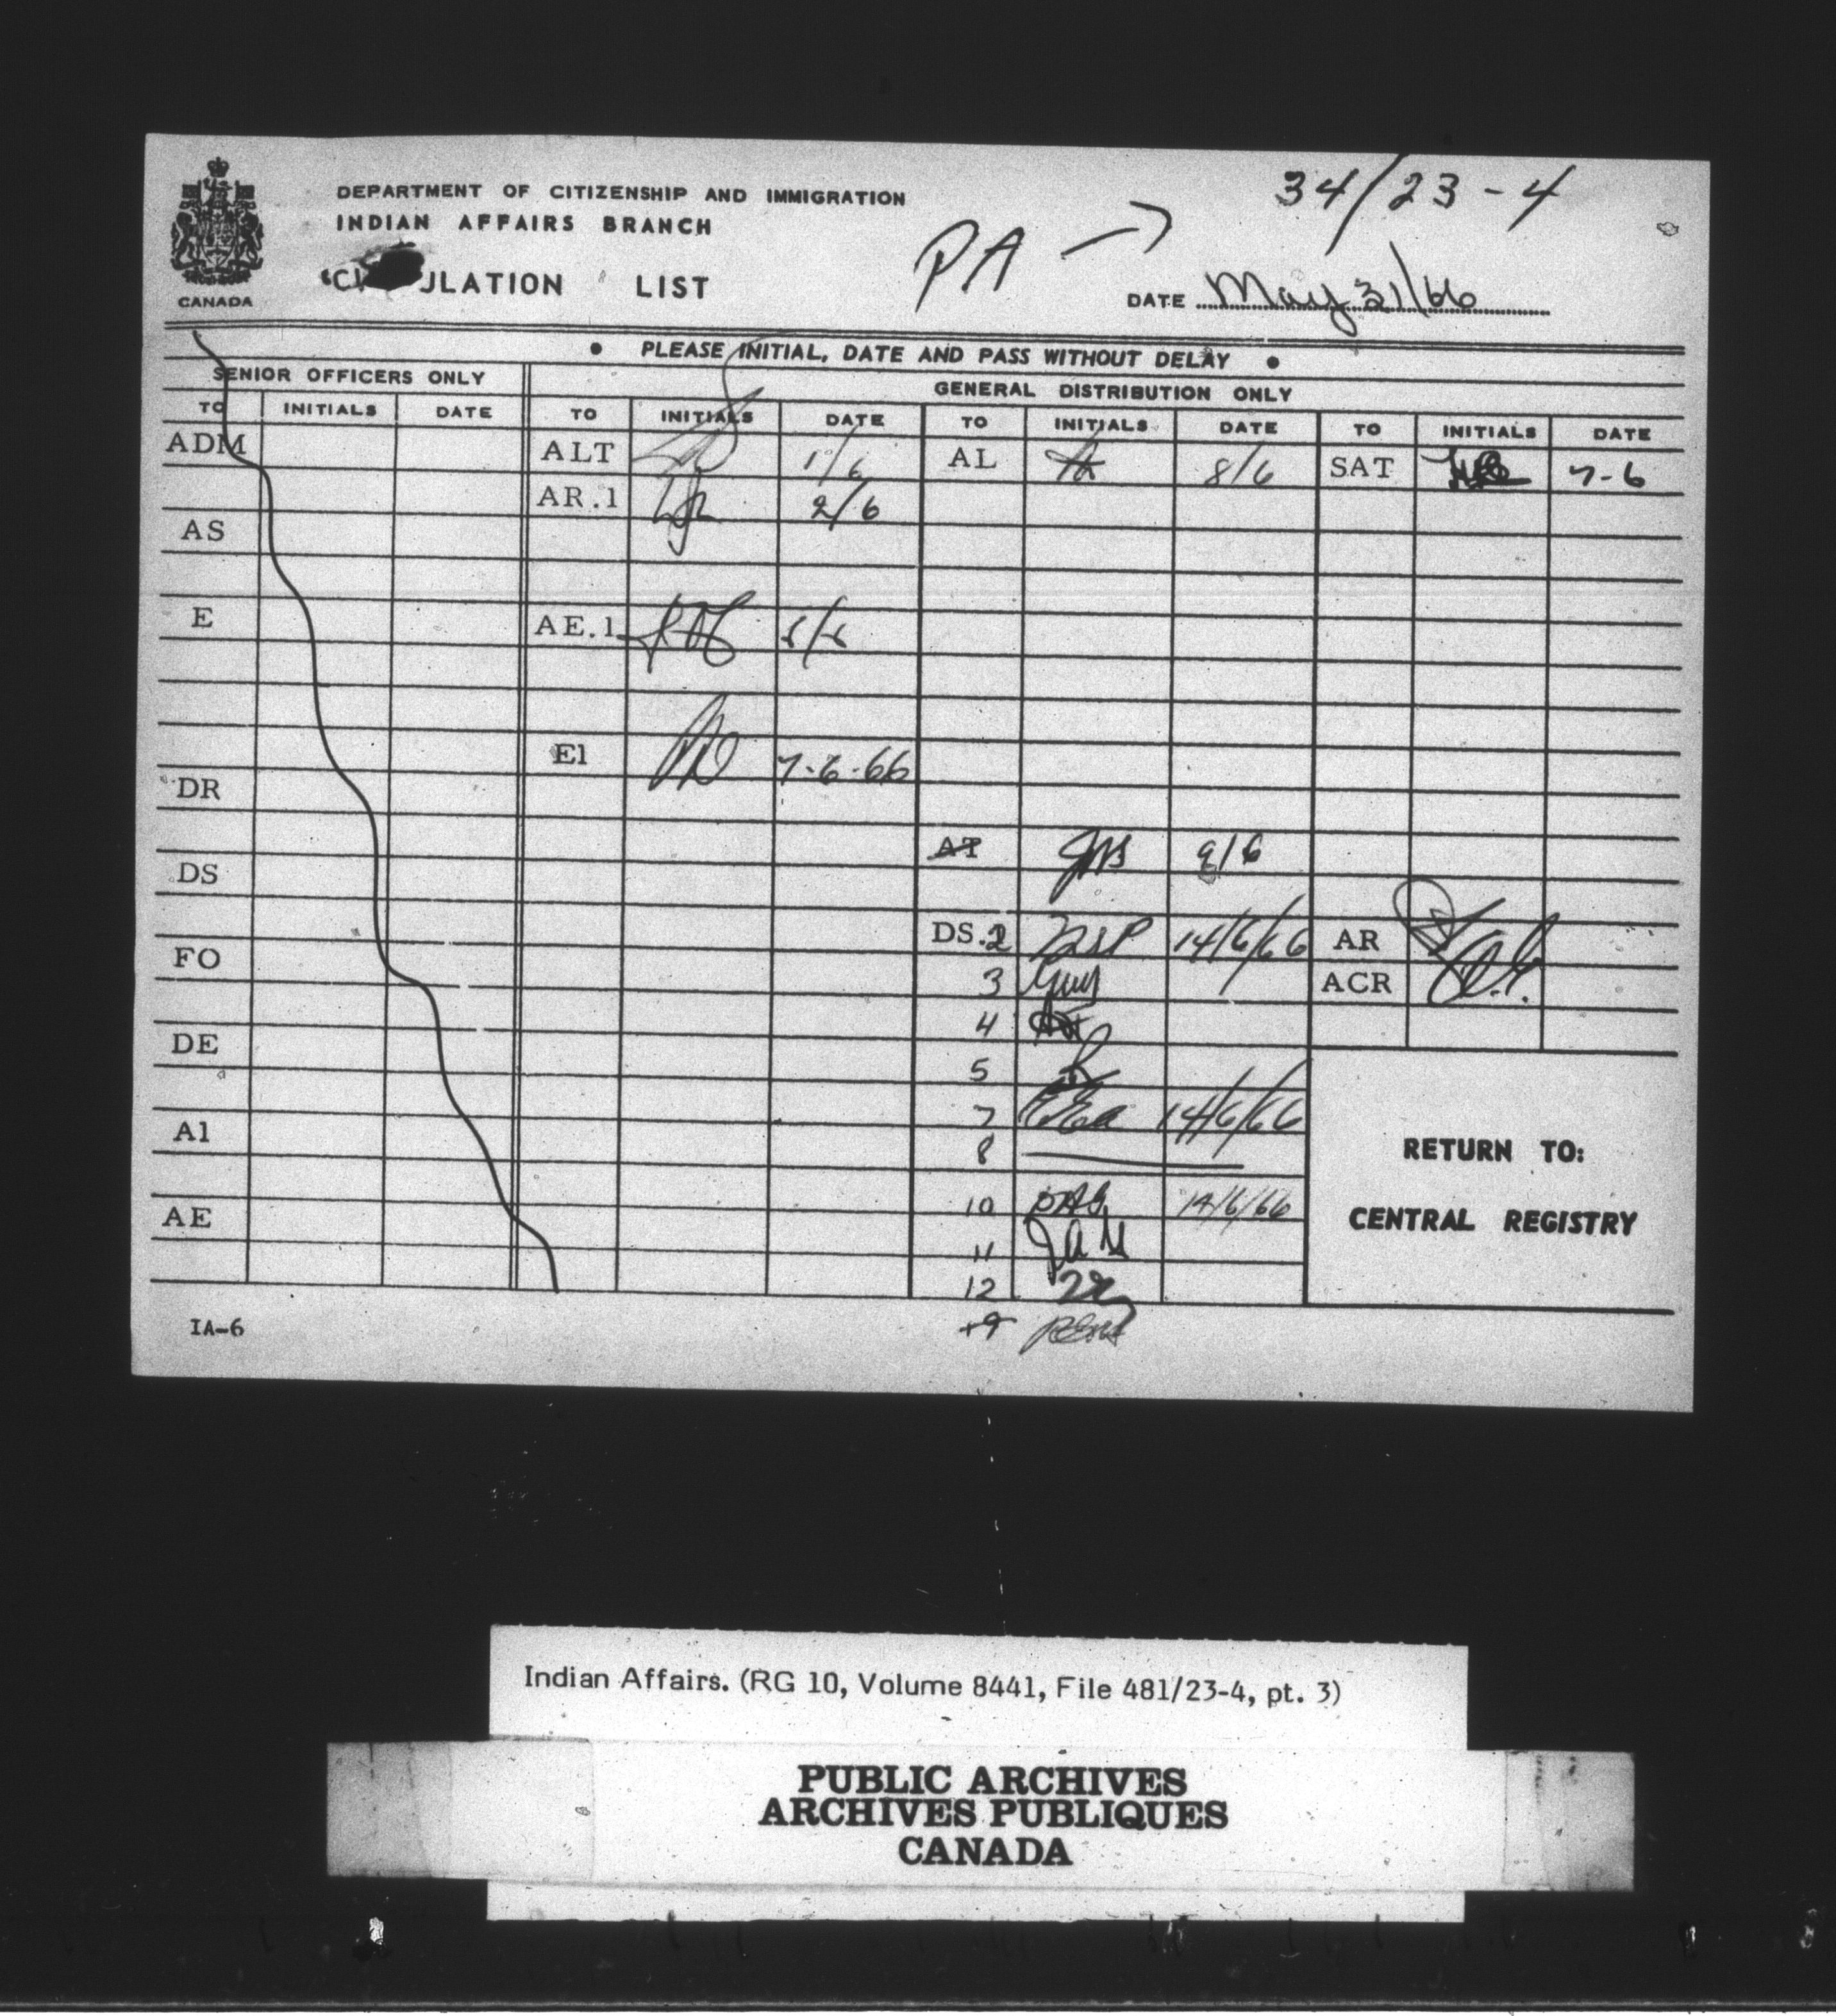 34/23-4
DEPARTMENT OF CITIZENSHIP AND IMMIGRATION
INDIAN AFFAIRS BRANCH
PA →
LIST
CANADA
DATE May 31/66
• PLEASE INITIAL, DATE AND PASS WITHOUT DELAY •
SENIOR OFFICERS ONLY
GENERAL DISTRIBUTION ONLY
TO INITIALS DATE TO INITIALS DATE TO INITIALS DATE TO INITIALS DATE
ADM ALT 1/6 AL 8/6 SAT 7-6
AR.1 2/6
AS
E AE.1
E1 7-6-66
DR
AT 9/6
DS
DS.2 14/6/66 AR
FO 3 ACR
4
DE 5
7 14/6/66
A1 8
RETURN TO:
10 14/6/66
AE CENTRAL REGISTRY
11 JAM
12
IA-6 +9
Indian Affairs. (RG 10, Volume 8441, File 481/23-4, pt. 3)
PUBLIC ARCHIVES
ARCHIVES PUBLIQUES
CANADA